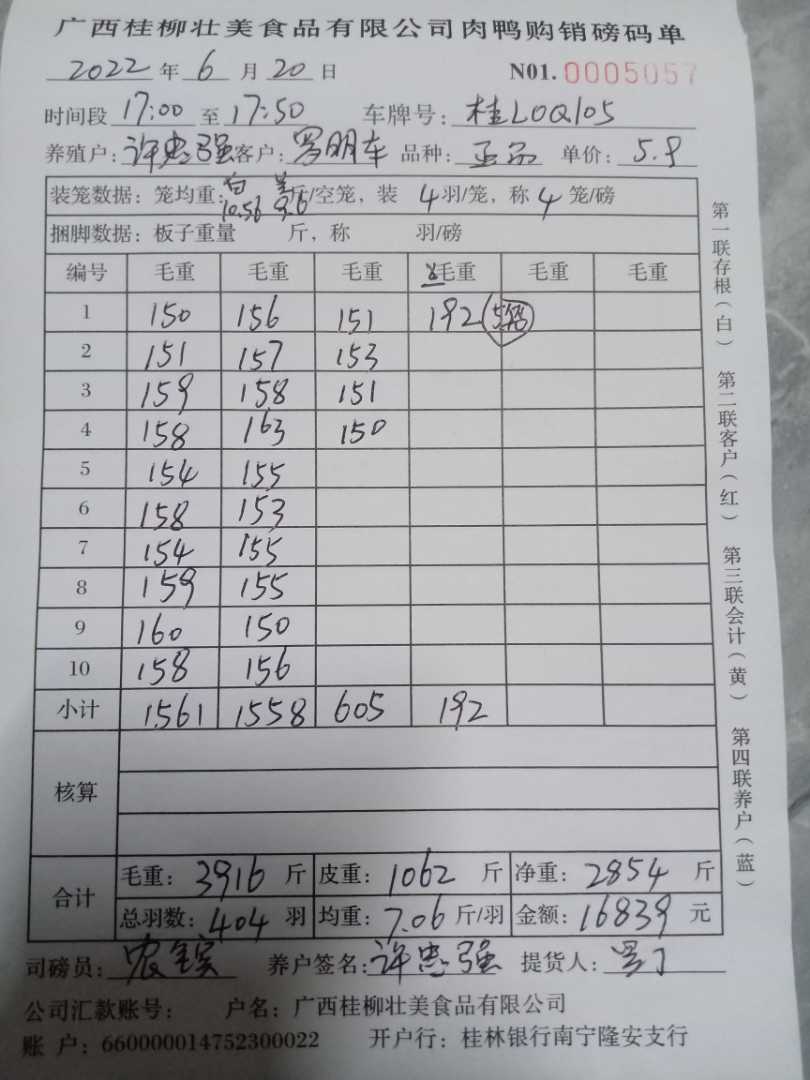 广西桂柳壮美食品有限公司肉鸭购销磅码单
2022 年 6 月 20 日 N01. 0005057
时间段 17:00 至 17:50 车牌号: 桂L0Q105
养殖户: 许忠强 客户: 罗明车 品种: 正品 单价: 5.9
装笼数据: 笼均重: 白 10.56 9.6 斤/空笼, 装 4 羽/笼, 称 4 笼/磅
捆脚数据: 板子重量 斤, 称 羽/磅
编号 毛重 毛重 毛重 毛重 毛重 毛重
1 150 156 151 192 (5笼)
2 151 157 153
3 159 158 151
4 158 163 150
5 154 155
6 158 153
7 154 155
8 159 155
9 160 150
10 158 156
小计 1561 1558 605 192
核算
合计
毛重: 3916 斤 皮重: 1062 斤 净重: 2854 斤
总羽数: 404 羽 均重: 7.06 斤/羽 金额: 16839 元
司磅员: 养户签名: 许忠强 提货人:
公司汇款账号: 户名: 广西桂柳壮美食品有限公司
账 户: 660000014752300022 开户行: 桂林银行南宁隆安支行
第一联存根(白) 第二联客户(红) 第三联会计(黄) 第四联养户(蓝)